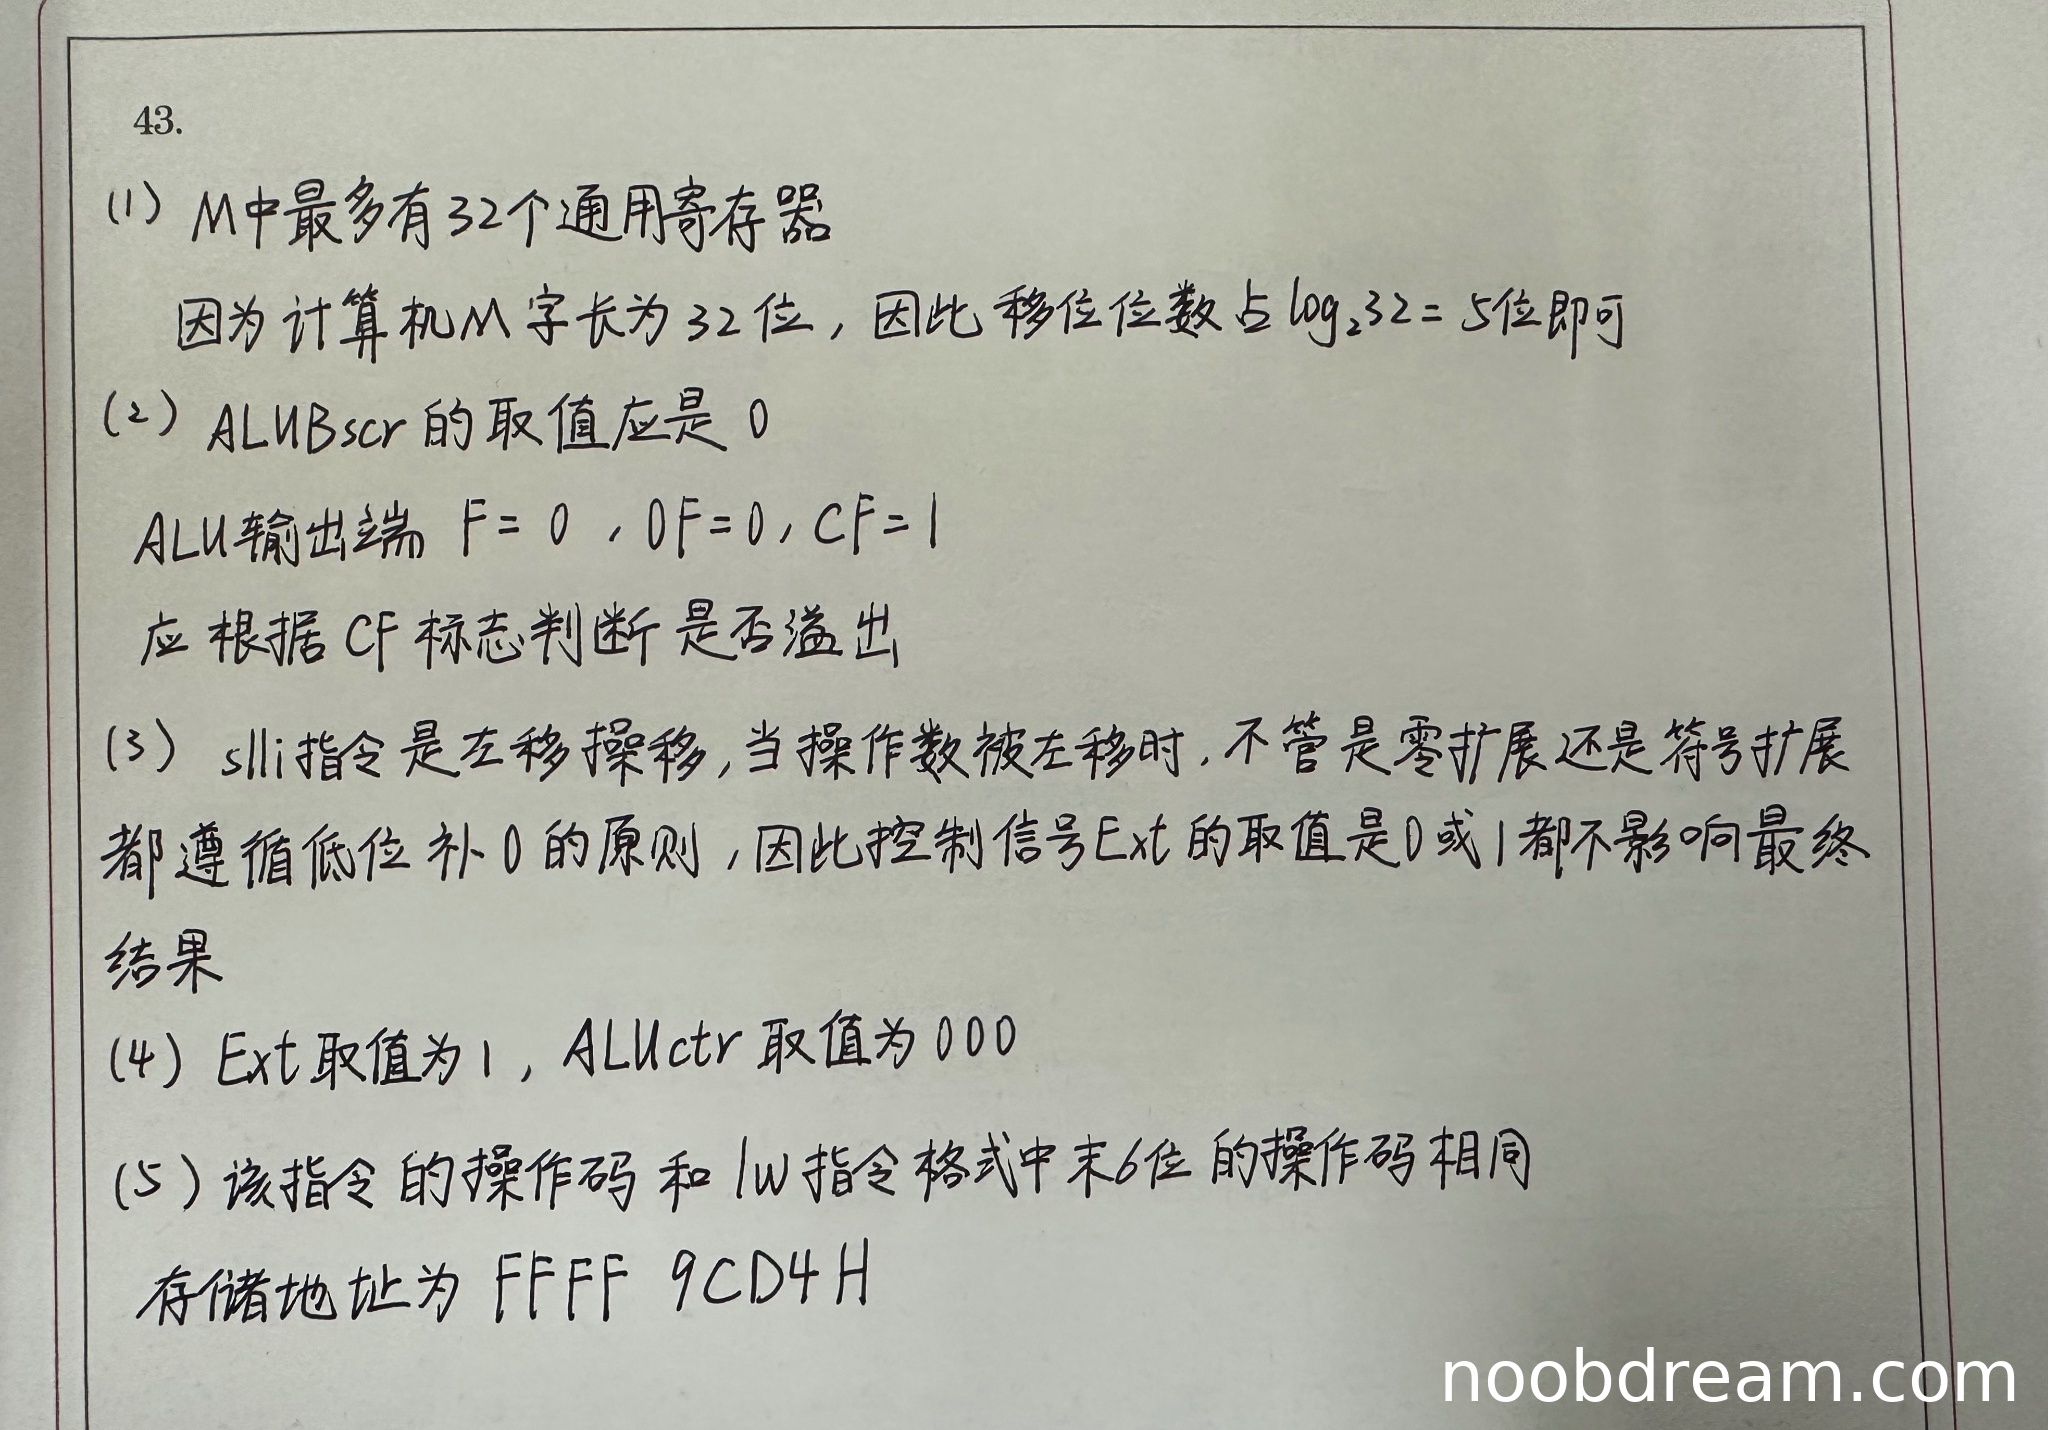 43.
(1) M中最多有32个通用寄存器
因为计算机M字长为32位，因此移位位数占log₂32=5位即可
(2) ALUBscr的取值应是0
ALU输出端 F=0，OF=0，CF=1
应根据CF标志判断是否溢出
(3) slli指令是左移操移，当操作数被左移时，不管是零扩展还是符号扩展
都遵循低位补0的原则，因此控制信号Ext的取值是0或1都不影响最终
结果
(4) Ext取值为1，ALUctr取值为000
(5) 该指令的操作码和lw指令格式中末6位的操作码相同
存储地址为 FFFF 9CD4H
noobdream.com